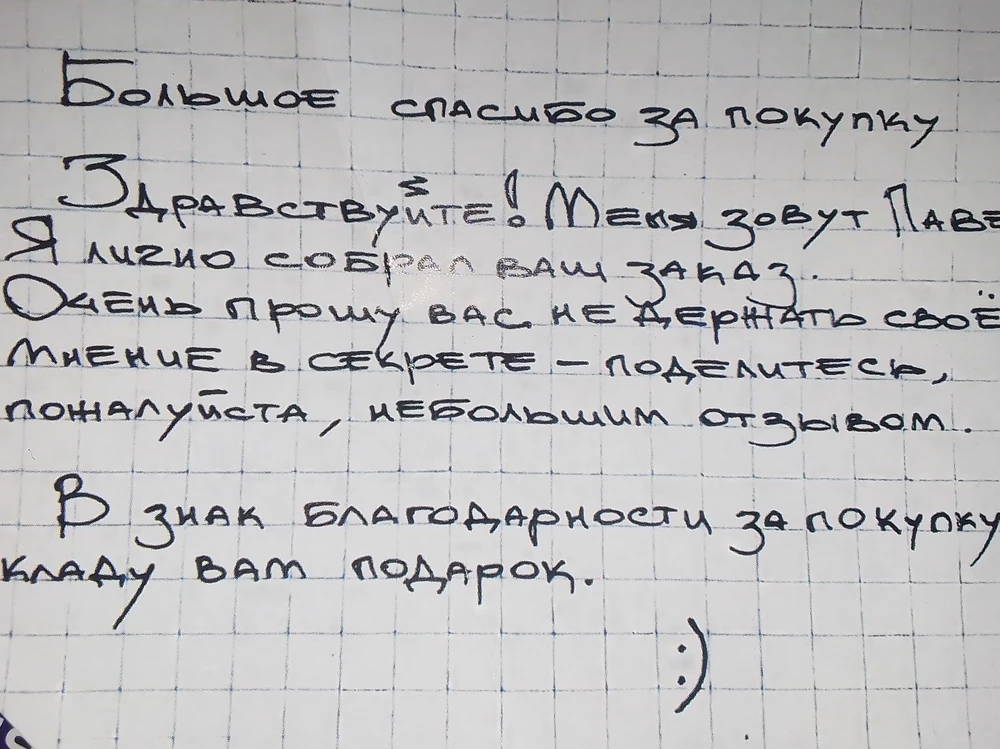 Большое спасибо за покупку
Здравствуйте! Меня зовут Паве
Я лично собрал ваш заказ.
Очень прошу вас не держать своё
мнение в секрете – поделитесь,
пожалуйста, небольшим отзывом.
В знак благодарности за покупку
кладу вам подарок.
:)